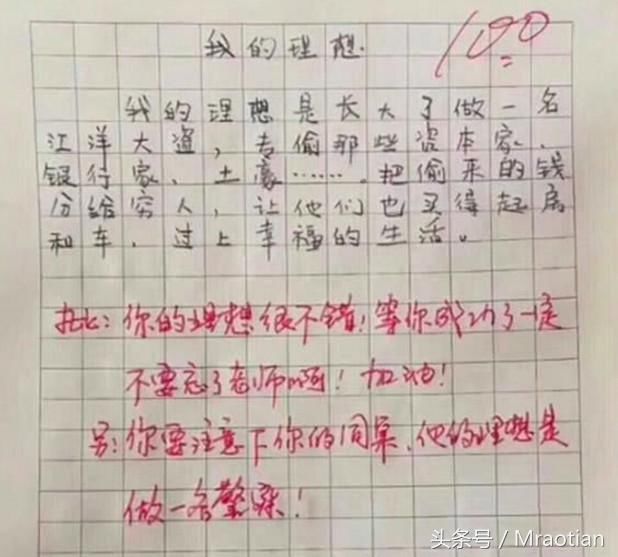 我的理想.
100
我的理想是长大了做一名
江洋大盗，专偷那些资本家、
银行家、土豪……. 把偷来的钱
分给穷人，让他们也买得起房
和车，过上幸福的生活。
批: 你的理想很不错! 等你成功了一定
不要忘了老师啊! 加油!
另: 你要注意下你的同桌, 他的理想是
做一名警察!
头条号 / Mraotian